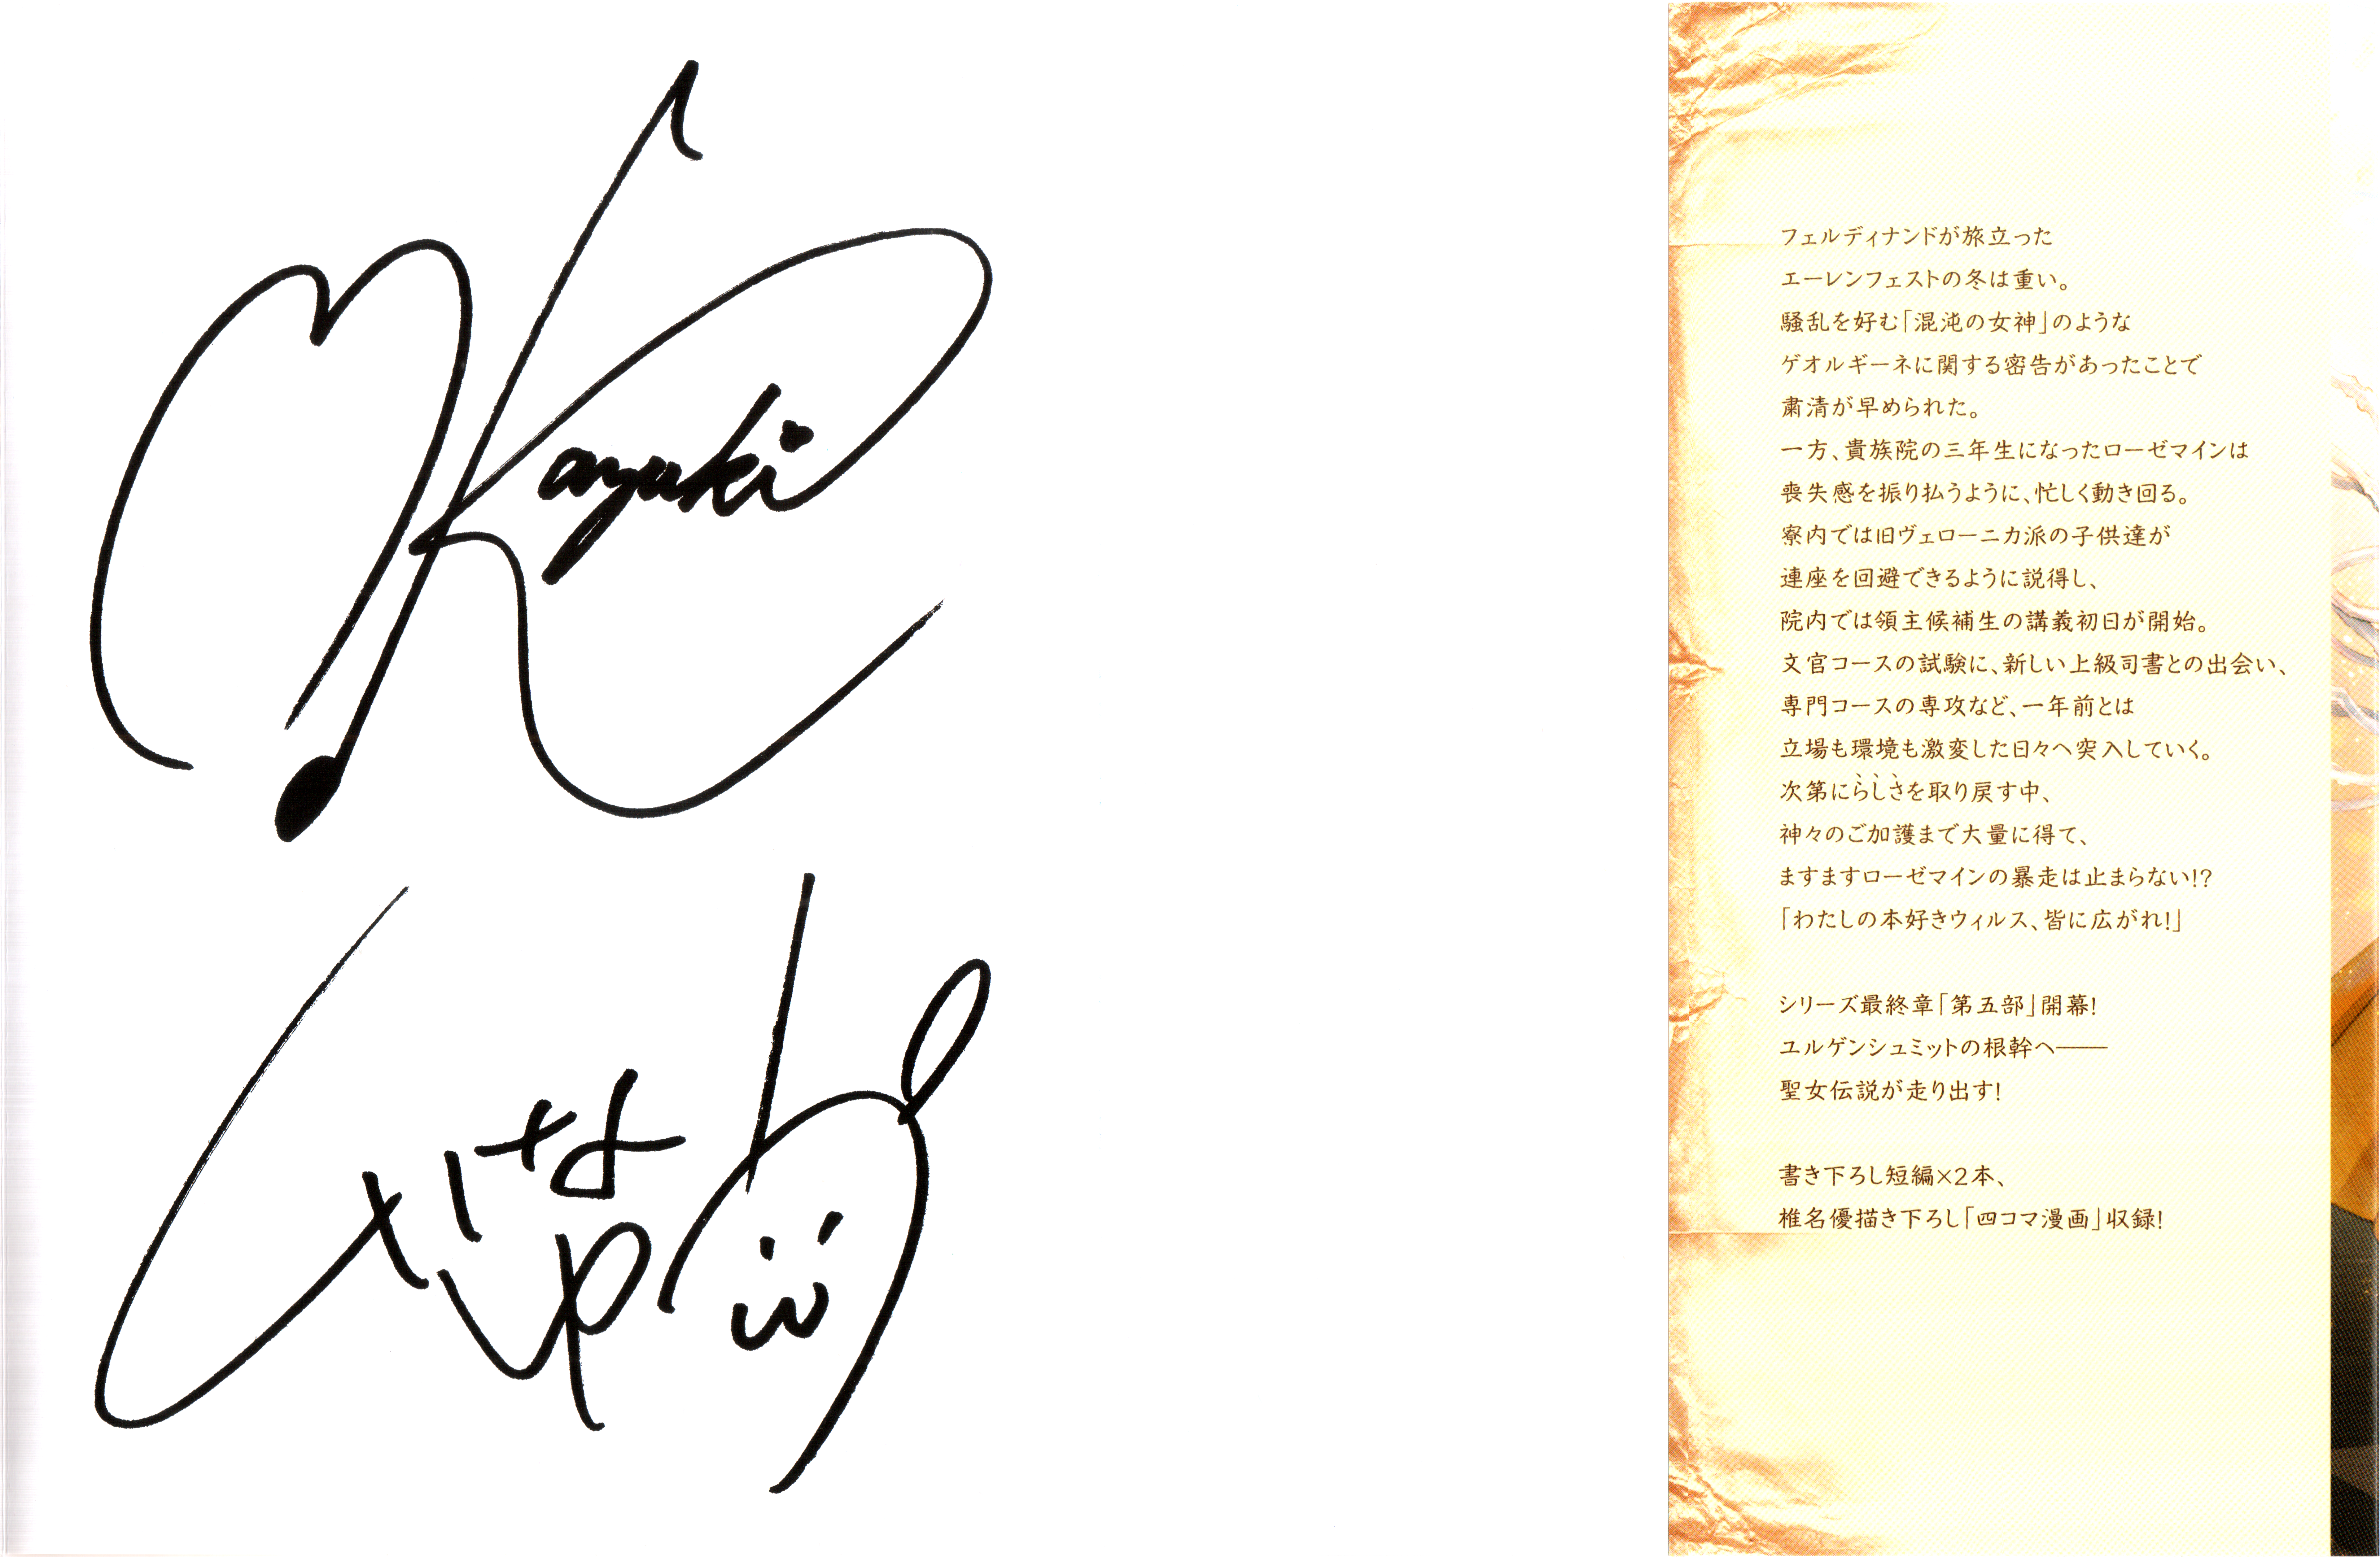 Kazuki
しいなゆう
フェルディナンドが旅立った
エーレンフェストの冬は重い。
騒乱を好む「混沌の女神」のような
ゲオルギーネに関する密告があったことで
粛清が早められた。
一方、貴族院の三年生になったローゼマインは
喪失感を振り払うように、忙しく動き回る。
寮内では旧ヴェローニカ派の子供達が
連座を回避できるように説得し、
院内では領主候補生の講義初日が開始。
文官コースの試験に、新しい上級司書との出会い、
専門コースの専攻など、一年前とは
立場も環境も激変した日々へ突入していく。
次第にらしさを取り戻す中、
神々のご加護まで大量に得て、
ますますローゼマインの暴走は止まらない!?
「わたしの本好きウィルス、皆に広がれ!」
シリーズ最終章「第五部」開幕!
ユルゲンシュミットの根幹へ――
聖女伝説が走り出す!
書き下ろし短編×2本、
椎名優描き下ろし「四コマ漫画」収録!